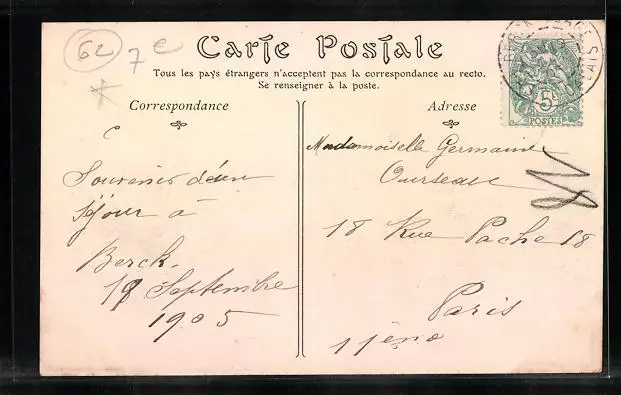 62
7e
Carte Postale
Tous les pays étrangers n'acceptent pas la correspondance au recto.
Se renseigner à la poste.
Correspondance
Souvenir d'un
Séjour à
Berck.
18 Septembre
1905
Adresse
Mademoiselle Germaine
18 Rue Pache 18
Paris
11ème
5c
POSTES